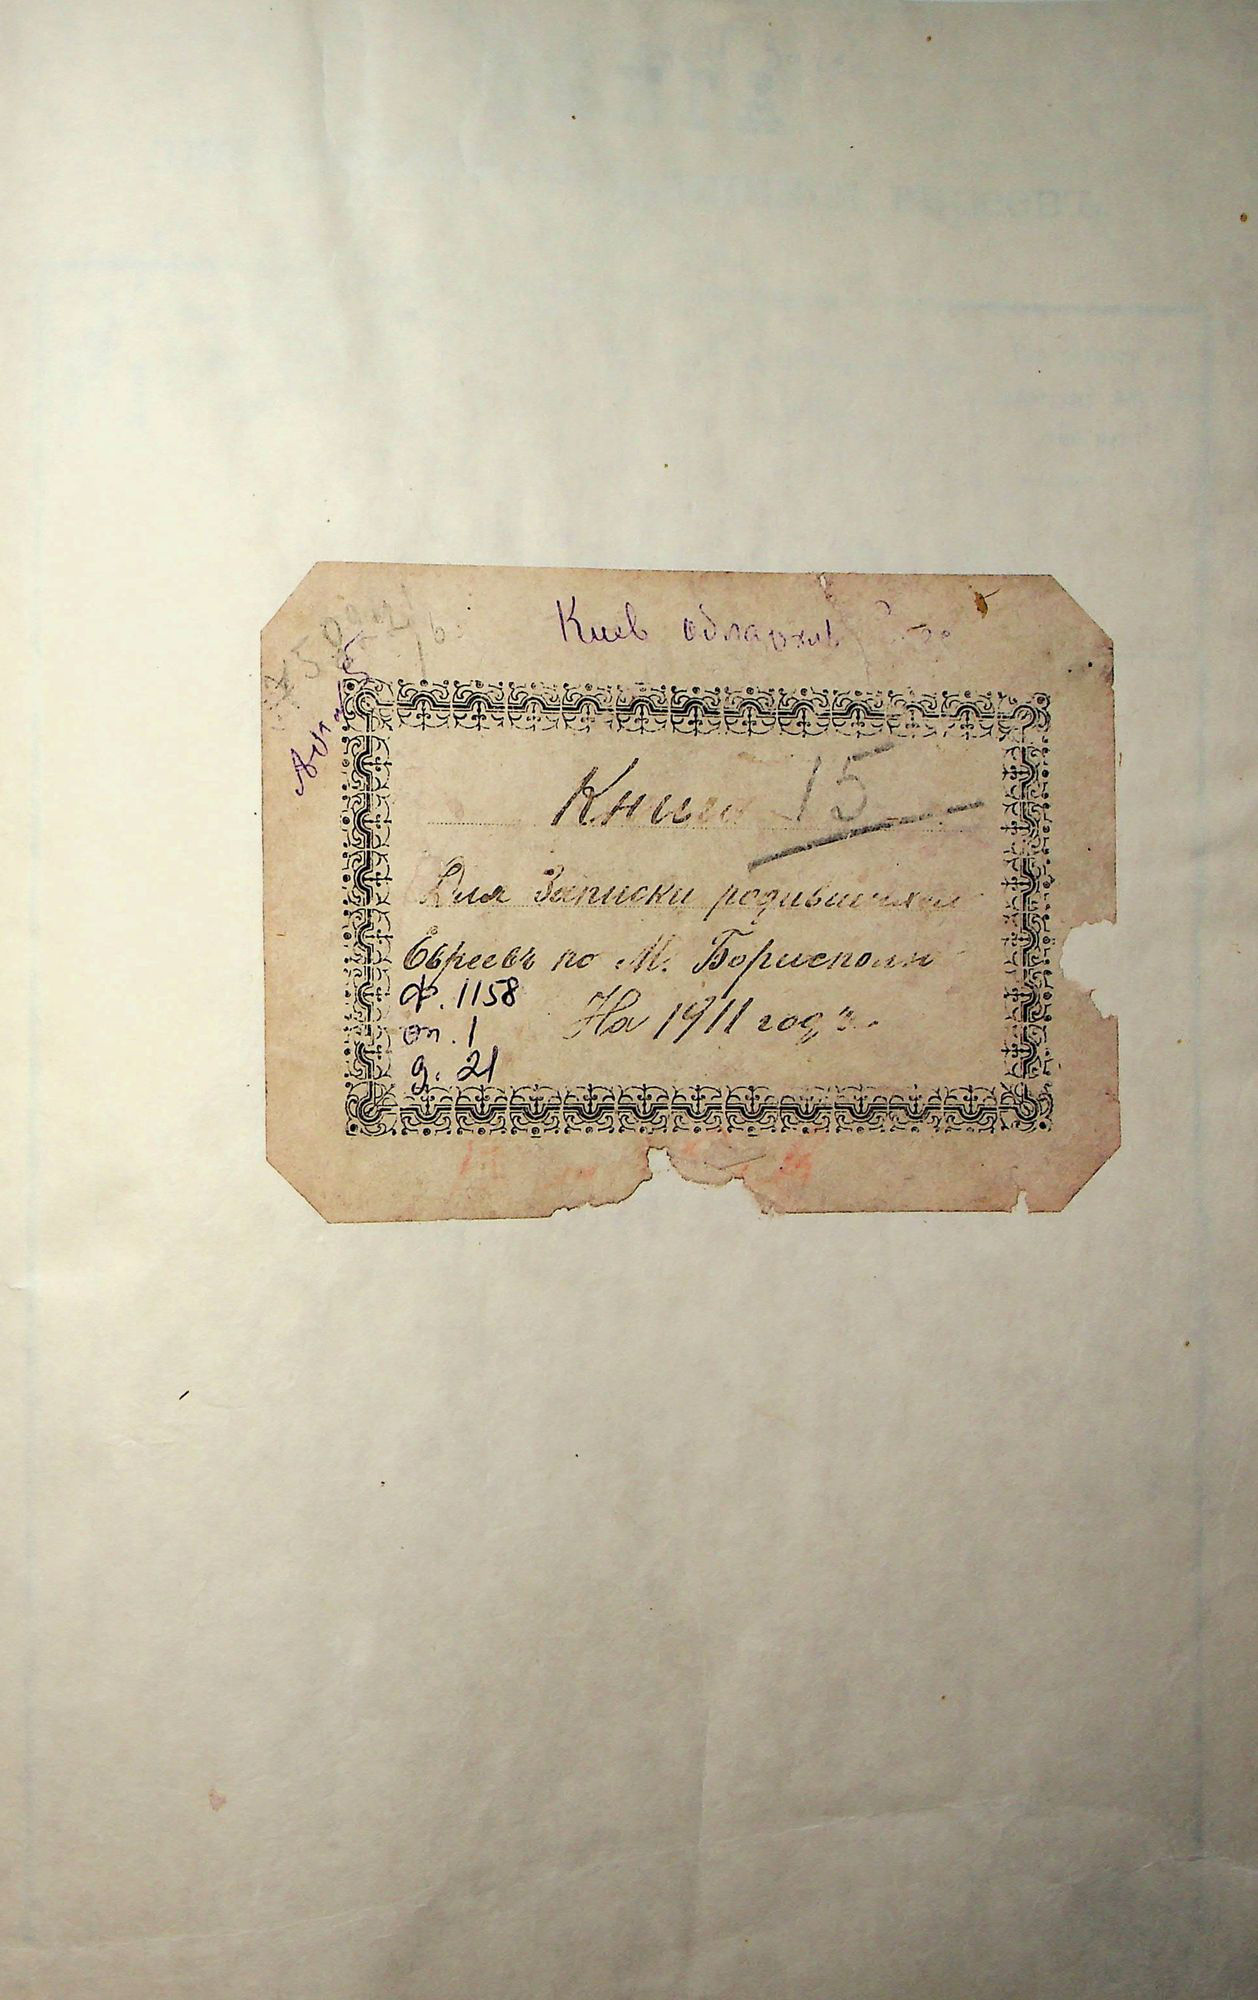 Киев облархив
Книга 15
Для Записки родившихся
Евреевъ по М. Борисполи
На 1911 годъ.
ф. 1158
оп. 1
д. 21